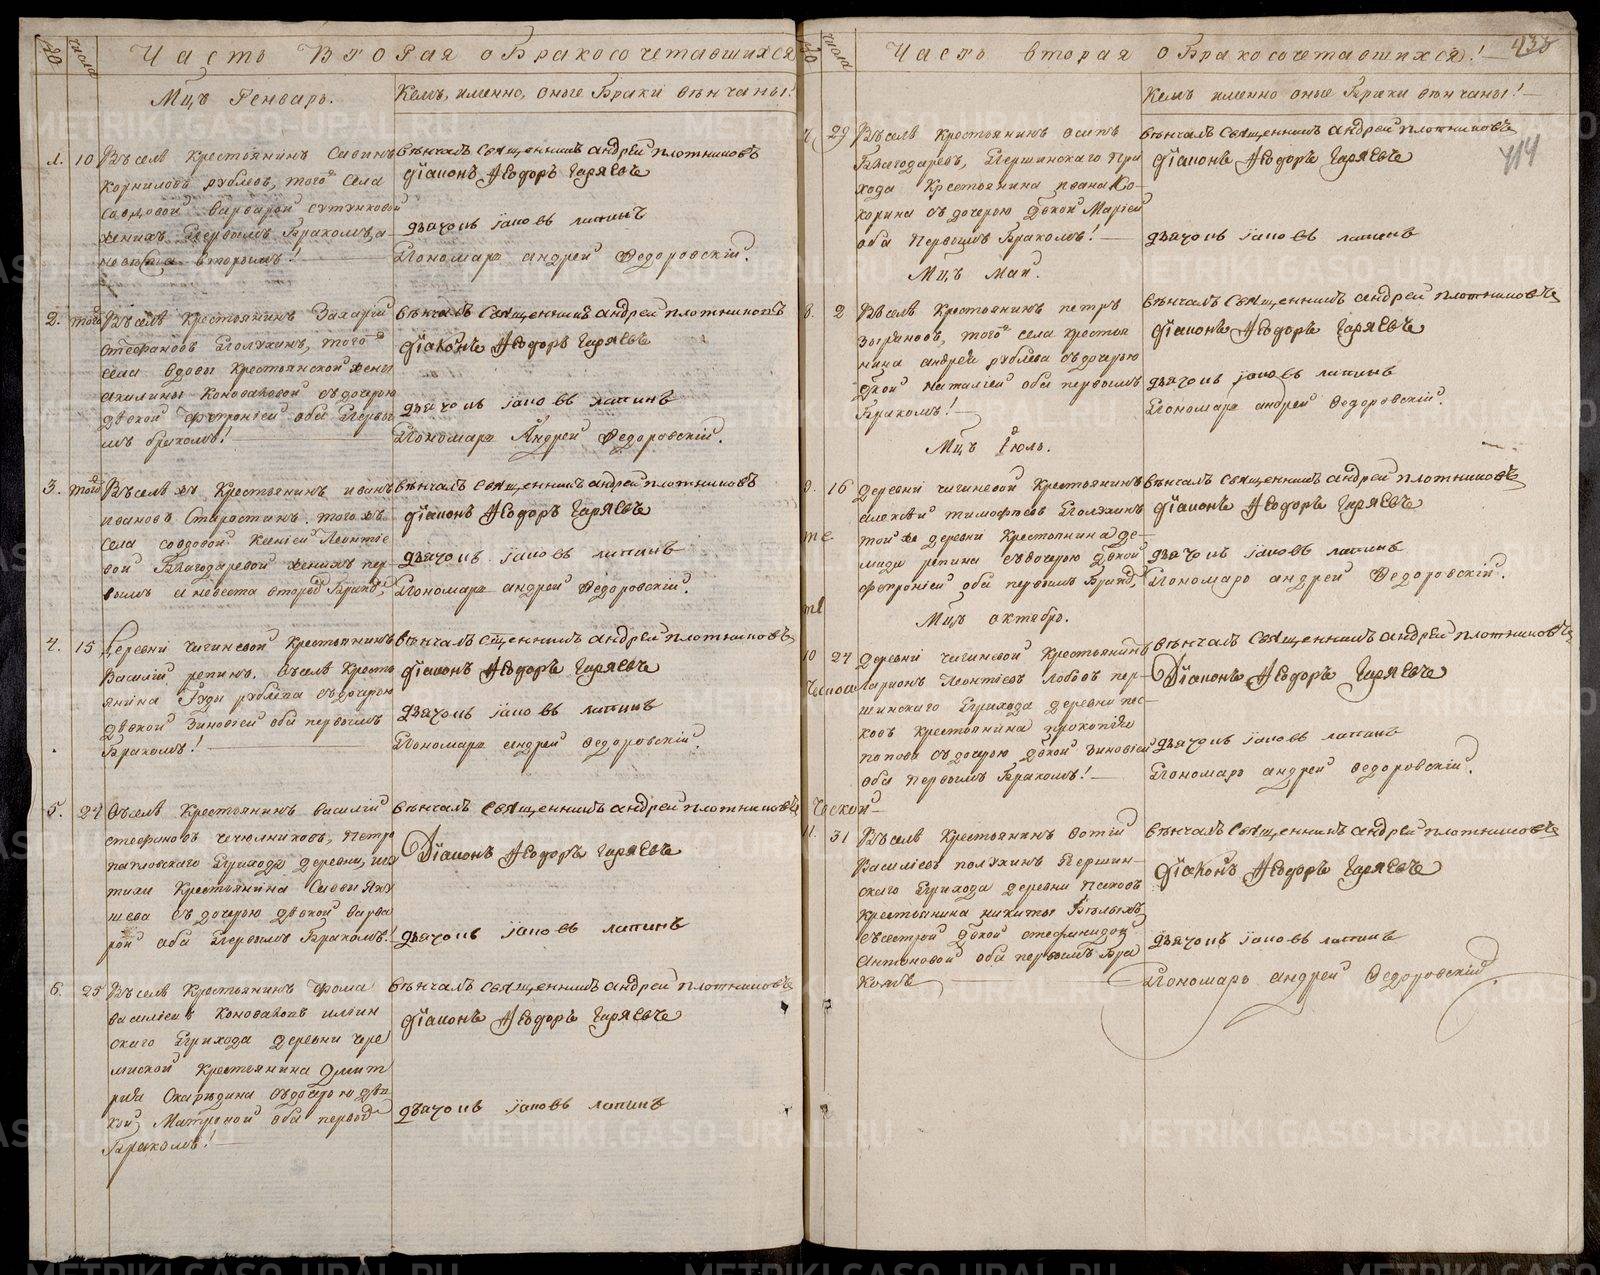 №
числа
Часть Вторая о Бракосочетавшихся
Мцъ Генварь.
Кемъ, именно, оные Браки венчаны!
1. 10
Въ селѣ Крестьянинъ Савинъ
Корниловъ рублевъ, того села
со вдовой Варварой
женихъ Первымъ Бракомъ, а
невѣста вторымъ!
вѣнчалъ Священникъ андрей плотниковъ
дїаконъ Ѳеодоръ Гаряевъ
дьячокъ їаковъ лапинъ
Пономарь андрей Федоровскій.
2. того
Въ селѣ Крестьянинъ Захарій
Стефановъ Полухинъ, того
села вдовы Крестьянской жены
акилины Коноваловой съ дочерью
дѣвкой Фетроніей оба Первы
мъ бракомъ!
вѣнчалъ Священникъ андрей плотниковъ
дїаконъ Ѳеодоръ Гаряевъ
дьячокъ їаковъ лапинъ
Пономарь Андрей Федоровскій.
3. того
Въ селѣ Крестьянинъ иванъ
ивановъ Старостинъ того
села со вдовой Ксеніей Леонтіе
вой Благодаревой женихъ пер
вымъ а невѣста вторы Брако,
вѣнчалъ Священникъ андрей плотниковъ
дїаконъ Ѳеодоръ Гаряевъ
дьячокъ їаковъ лапинъ
Пономарь андрей Федоровскій.
4. 15
Деревни чигиневой Крестьянинъ
Василій репинъ, въ селѣ Кресть
янина рублева съ дочерью
дѣвкой Зиновіей оба первымъ
Бракомъ!
вѣнчалъ сщенникъ андрей плотниковъ
дїаконъ Ѳеодоръ Гаряевъ
дьячокъ їаковъ лапинъ
Пономарь андрей Федоровскій.
5. 24
Въ селѣ Крестьянинъ василій
стефановъ чечюлниковъ, Петро
павловскаго Прихода деревни,
Крестьянина Саввы Яку
шева съ дочерью дѣвкой варва
рой оба Первымъ Бракомъ!
вѣнчалъ Священникъ андрей плотниковъ
Дїаконъ Ѳеодоръ Гаряевъ
дьячокъ їаковъ лапинъ
6. 25
Въ селѣ Крестьянинъ Фома
василіевъ Коноваловъ илин
скаго Прихода деревни чере
миской Крестьянина Дмит
рія съ дочерью дѣв
кой Матроной оба первы
Бракомъ!
вѣнчалъ Священникъ андрей плотниковъ
дїаконъ Ѳеодоръ Гаряевъ
дьячокъ їаковъ лапинъ
числа
Часть вторая о Бракосочетавшихся!
438
414
Кемъ именно оные Браки вѣнчаны!
7 29
Въ селѣ Крестьянинъ осипъ
Благодаревъ, Першинскаго При
хода Крестьянина ивана Ко
корина съ дочерью дѣвкой Маріей
оба Первымъ Бракомъ!
вѣнчалъ Священникъ андрей плотниковъ
дїаконъ Ѳеодоръ Гаряевъ
дьячокъ їаковъ лапинъ
Мцъ Маи.
8. 2
Въ селѣ Крестьянинъ петръ
Зыряновъ, того села крестья
нина андрея рублева съ дочерью
дѣвкой Наталіей оба первымъ
Бракомъ!
вѣнчалъ Священникъ андрей плотниковъ
дїаконъ Ѳеодоръ Гаряевъ
дьячокъ їаковъ лапинъ
Пономарь андрей Федоровскій.
Мцъ Іюль.
9. 16
деревни чигиневой Крестьянинъ
алексѣй тимофѣевъ Полухинъ
той же деревни Крестьянина де
мида репина съ дочерью дѣвкой
фетроніей оба первымъ Брако,
вѣнчалъ Священникъ андрей плотниковъ
дїаконъ Ѳеодоръ Гаряевъ
дьячокъ їаковъ лапинъ
Пономарь андрей Федоровскій.
Мцъ октябрь.
10 24
деревни чигиневой Крестьянинъ
Ларионъ Леонтіевъ Лобовъ пер
шинскаго Прихода деревни пес
ковъ Крестьянина прокопія
попова съ дочерью дѣвкой Зиновіей
оба первымъ Бракомъ!
вѣнчалъ Священникъ андрей плотниковъ
Дїаконъ Ѳеодоръ Гаряевъ
дьячокъ їаковъ лапинъ
Пономарь андрей Федоровскій.
11. 31
Въ селѣ Крестьянинъ Фотій
Василіевъ полухинъ Першин
скаго Прихода деревни Песковъ
Крестьянина никиты Бѣлыхъ
съ сестрой дѣвкой степанидой
Антоновой оба первымъ Бра
комъ
вѣнчалъ Священникъ андрей плотниковъ
дїаконъ Ѳеодоръ Гаряевъ
дьячокъ їаковъ лапинъ
Пономарь андрей Федоровскій
METRIKI.GASO-URAL.RU